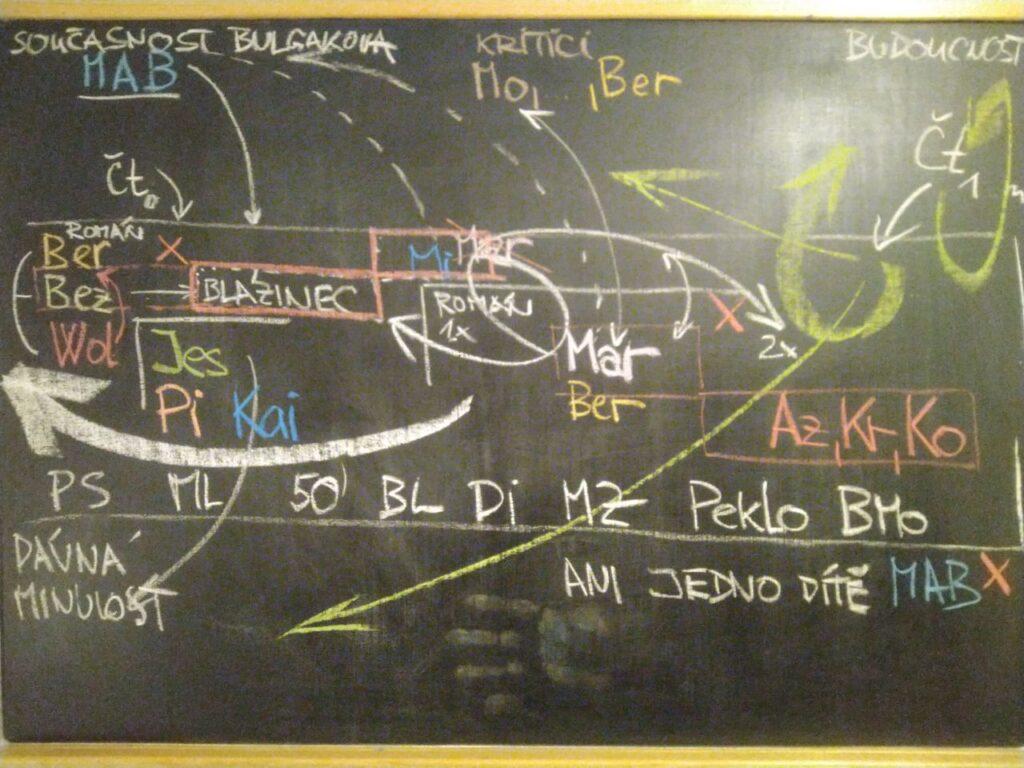 SOUČASNOST BULGAKOVA KRITICI BUDOUCNOST
MAB Mo, ..., Ber
Čt0 Čt1
ROMÁN
Ber X Mi Mar
Bez BLÁZINEC ROMÁN X
Wol 1x 2x
Jes Mar
Pi Kai Ber Az, Kr, Ko
PS ML 50 BL Di MZ Peklo BMo
DÁVNÁ
MINULOST
ANI JEDNO DÍTĚ MAB X